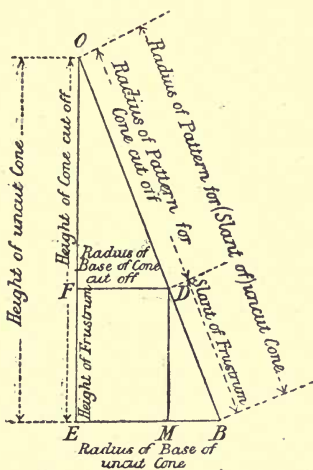 O
Radius of Pattern for (Slant of) uncut Cone
Radius of Pattern for
Cone cut off
Height of uncut Cone
Height of Cone cut off
Radius of
Base of Cone
cut off
F
D
Slant of Frustrum
Height of Frustrum
E
M
B
Radius of Base of
uncut Cone